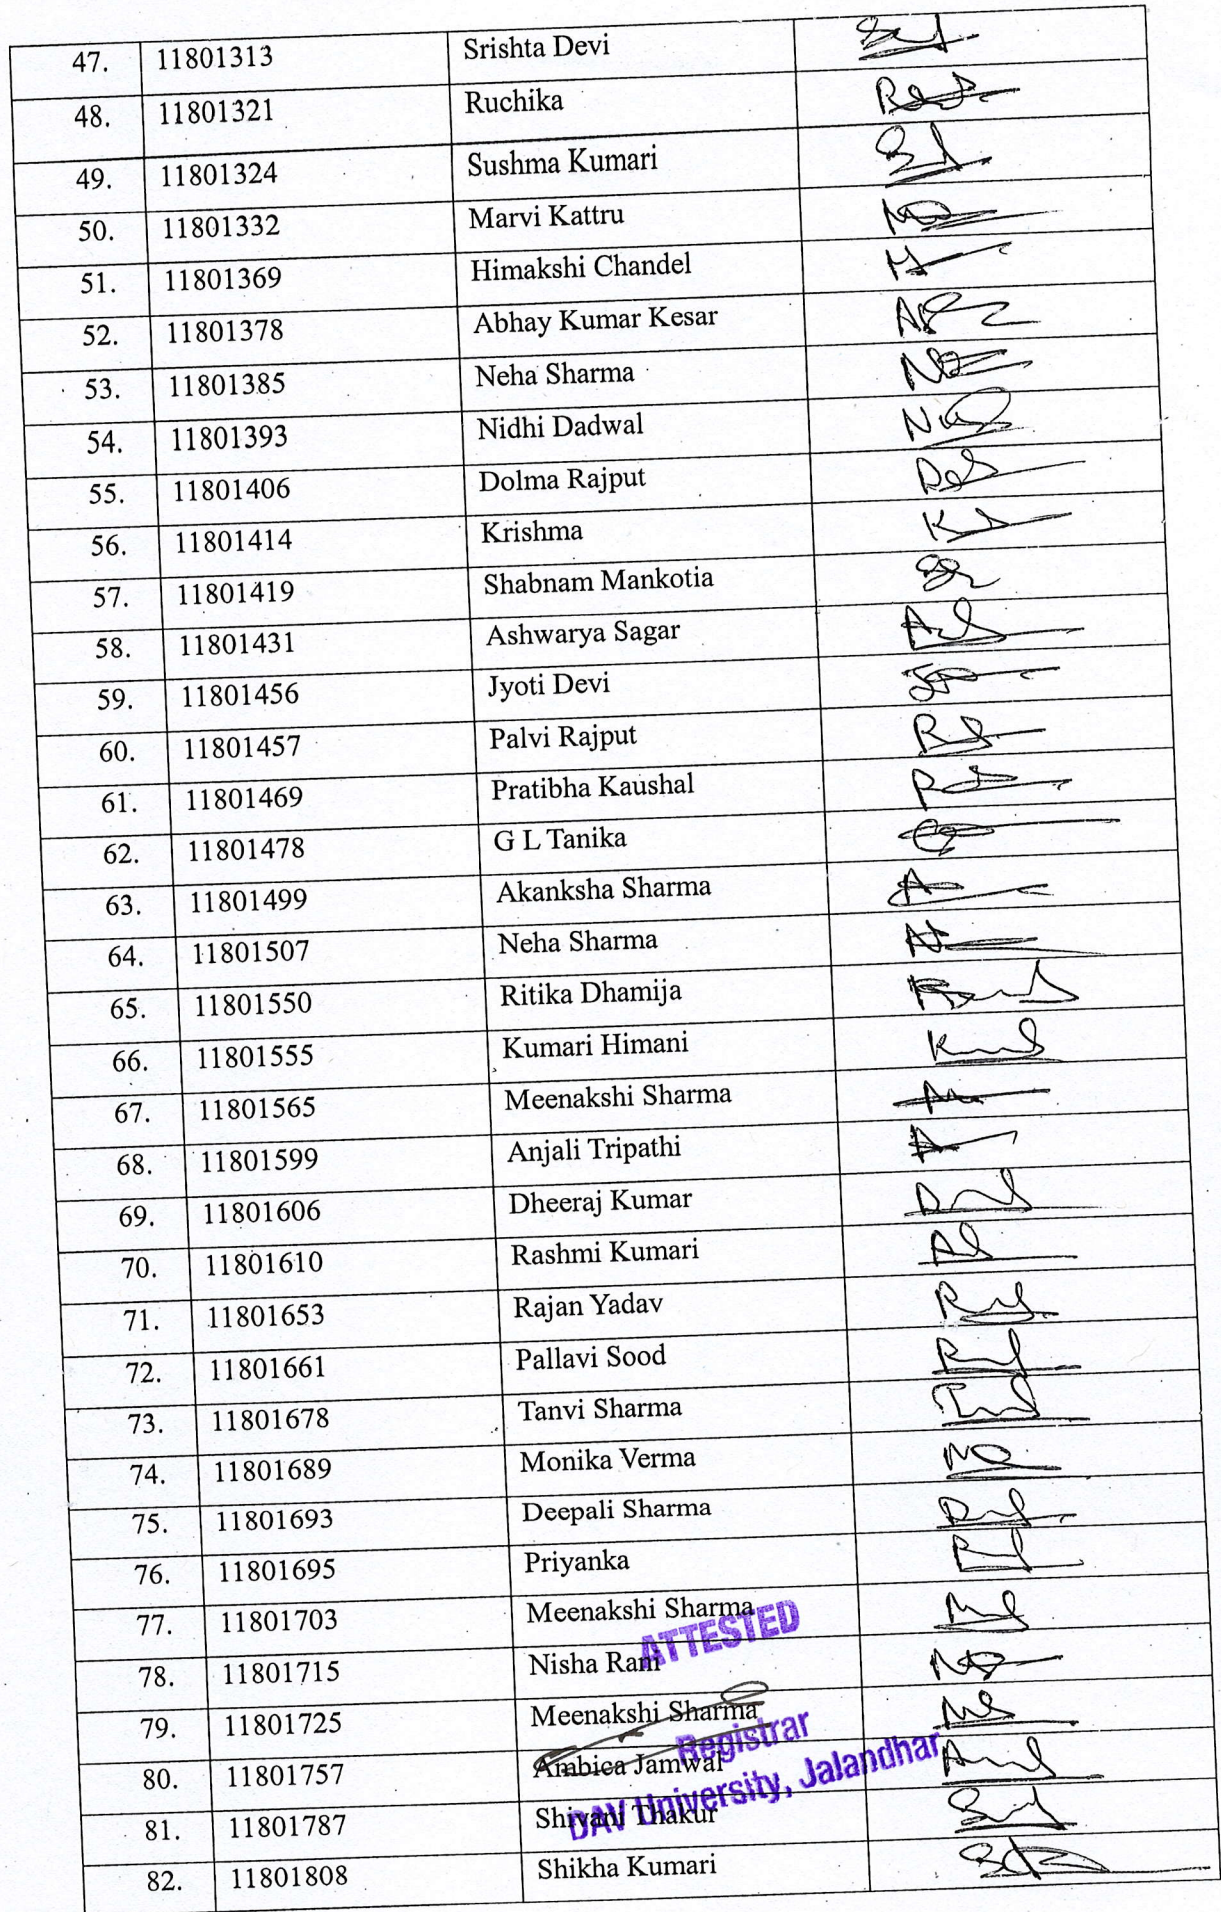 47. 11801313 Srishta Devi
48. 11801321 Ruchika
49. 11801324 Sushma Kumari
50. 11801332 Marvi Kattru
51. 11801369 Himakshi Chandel
52. 11801378 Abhay Kumar Kesar
53. 11801385 Neha Sharma
54. 11801393 Nidhi Dadwal
55. 11801406 Dolma Rajput
56. 11801414 Krishma
57. 11801419 Shabnam Mankotia
58. 11801431 Ashwarya Sagar
59. 11801456 Jyoti Devi
60. 11801457 Palvi Rajput
61. 11801469 Pratibha Kaushal
62. 11801478 G L Tanika
63. 11801499 Akanksha Sharma
64. 11801507 Neha Sharma
65. 11801550 Ritika Dhamija
66. 11801555 Kumari Himani
67. 11801565 Meenakshi Sharma
68. 11801599 Anjali Tripathi
69. 11801606 Dheeraj Kumar
70. 11801610 Rashmi Kumari
71. 11801653 Rajan Yadav
72. 11801661 Pallavi Sood
73. 11801678 Tanvi Sharma
74. 11801689 Monika Verma
75. 11801693 Deepali Sharma
76. 11801695 Priyanka
77. 11801703 Meenakshi Sharma
ATTESTED
78. 11801715 Nisha Rani
79. 11801725 Meenakshi Sharma
Registrar
80. 11801757 Ambica Jamwal
DAV University, Jalandhar
81. 11801787 Shivani Thakur
82. 11801808 Shikha Kumari